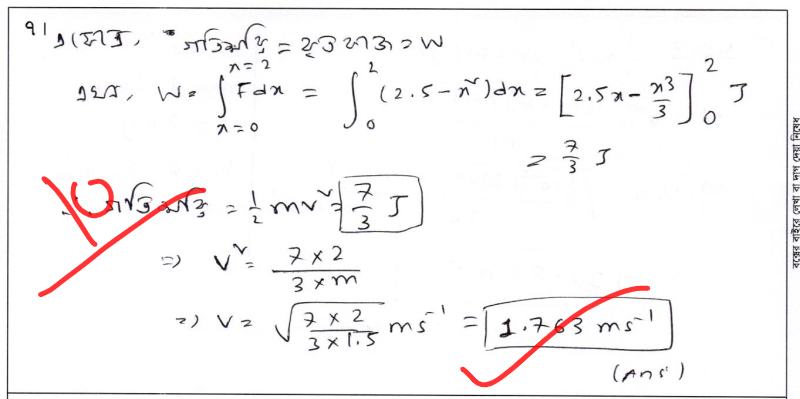 ৭। এক্ষেত্রে, গতিশক্তি = কৃতকাজ = W
এখন, W = ∫_{x=0}^{x=2} Fdx = ∫_0^2 (2.5 - x²)dx = [2.5x - x³/3]_0^2 J
= 7/3 J
∴ গতিশক্তি = 1/2 mv² = 7/3 J
10
⇒ v² = 7 × 2 / 3 × m
⇒ v = √(7 × 2 / 3 × 1.5) ms⁻¹ = 1.763 ms⁻¹
(Ans)
বক্সের বাইরে লেখা বা দাগ দেয়া নিষেধ